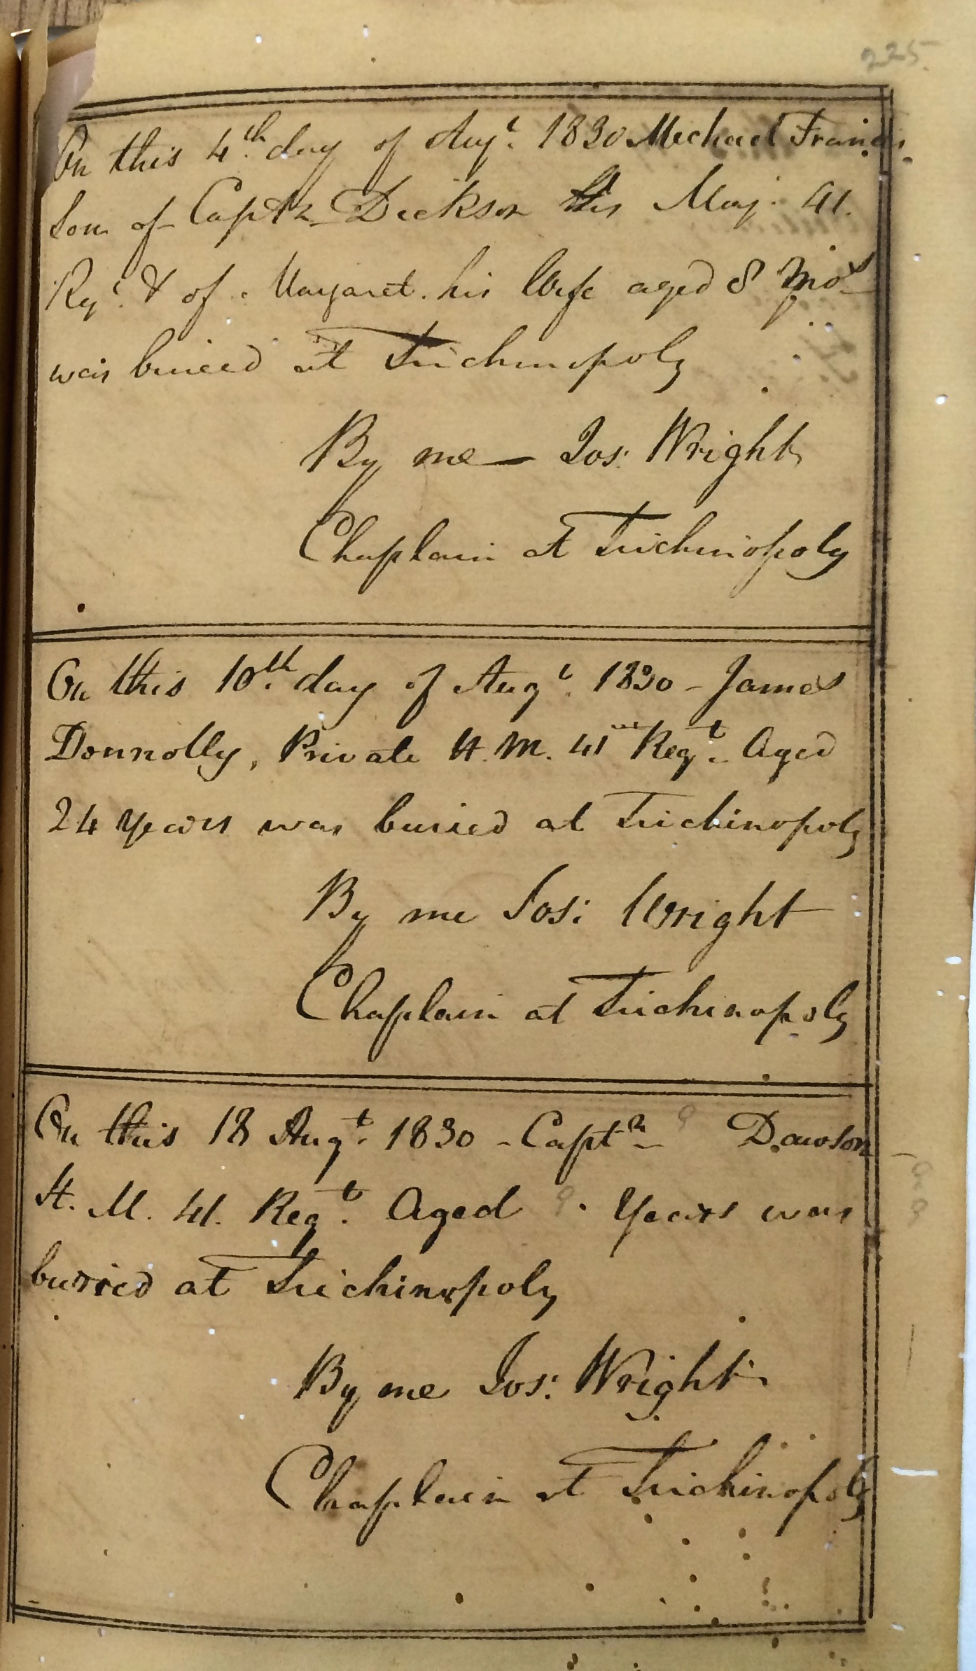 225.
On this 4th day of Augt. 1830 Michael Francis.
Son of Captn Dickson His Maj. 41.
Regt. & of Margaret his Wife aged 8 Mos
was buried at Trichinopoly
By me — Jos: Wright
Chaplain at Trichinopoly
On this 10th day of Augt. 1830 - James
Donnolly, Private H. M. 41 Regt. Aged
24 Years was buried at Trichinopoly
By me Jos: Wright
Chaplain at Trichinopoly
On this 18 Augt. 1830 - Captn ? Dawson
H. M. 41. Regt. Aged ? . Years was
burried at Trichinopoly
By me Jos: Wright
Chaplain at Trichinopoly